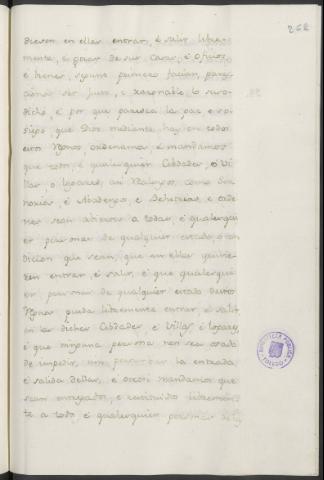 262
diesen en ellas entrar, é salir libre-
mente, é gozar de sus casas, é oficios,
é bienes, segund primero facian, pares-
ce ser justo, é razonable lo suso-
dicho, é por que paresca la paz e so-
siego, que Dios mediante hay en todos
estos Reynos, ordenamos, é mandamos
que todas, é qualesquier Cibdades, é Vi-
llas, é logares, asi Realengos, como Se-
ñorios, é Abadengos, e Behetrias, e orde-
nes sean abiertas a todas, é qualesqui-
er personas de qualquier estado, é con
dicion que sean, que en ellas quisie-
ren entrar, é salir, é que qualesqui-
er personas de qualquier estado destos
Reynos pueda libremente entrar, é salir
en las dichas Cibdades, é Villas, é logares,
é que ninguna persona non sea osado
de impedir, nin perturbar la entrada,
é salida dellas, e otrosi mandamos que
sean entregados, e restituidos libremen-
te a todos, é qualesquier personas de
BIBLIOTECA PUBLICA
TOLEDO